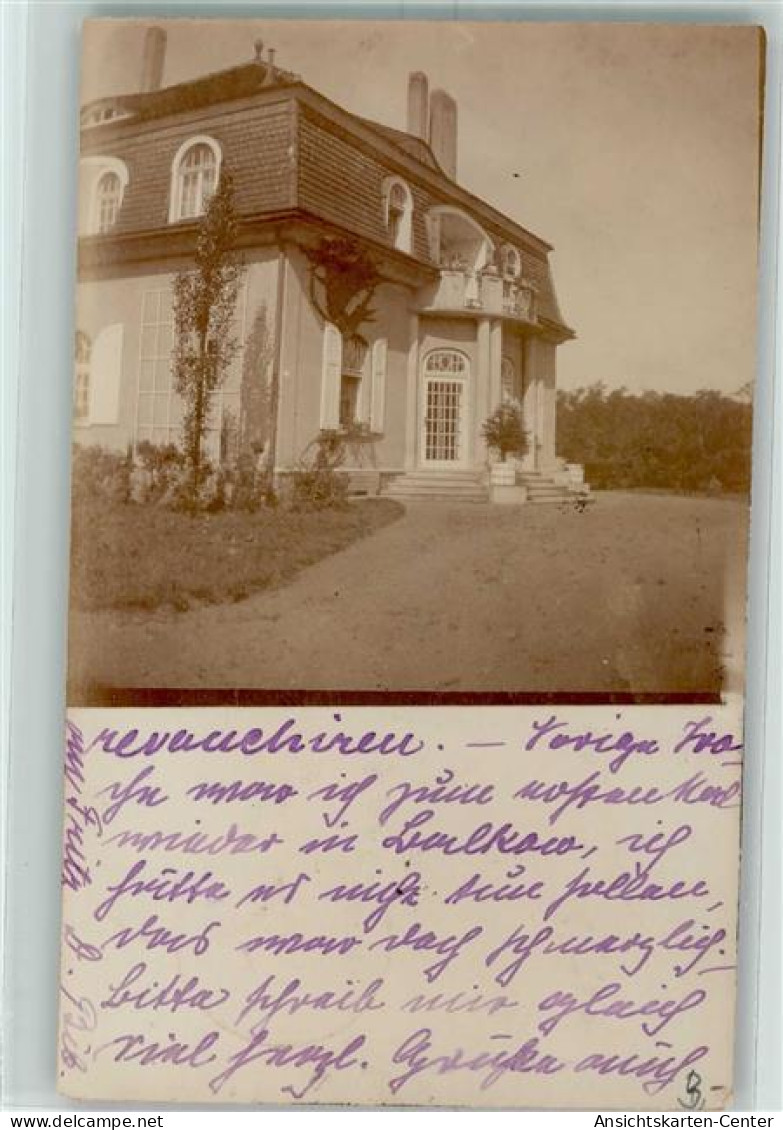 revanchiren. — Vorige Wo-
che war ich zum ersten Mal
wieder in Balkow, ich
hätte es nicht tun sollen,
das war doch schmerzlich. —
Bitte schreib mir gleich
viel herzl. Grüße auch
an Fritz
B,-
Ansichtskarten-Center